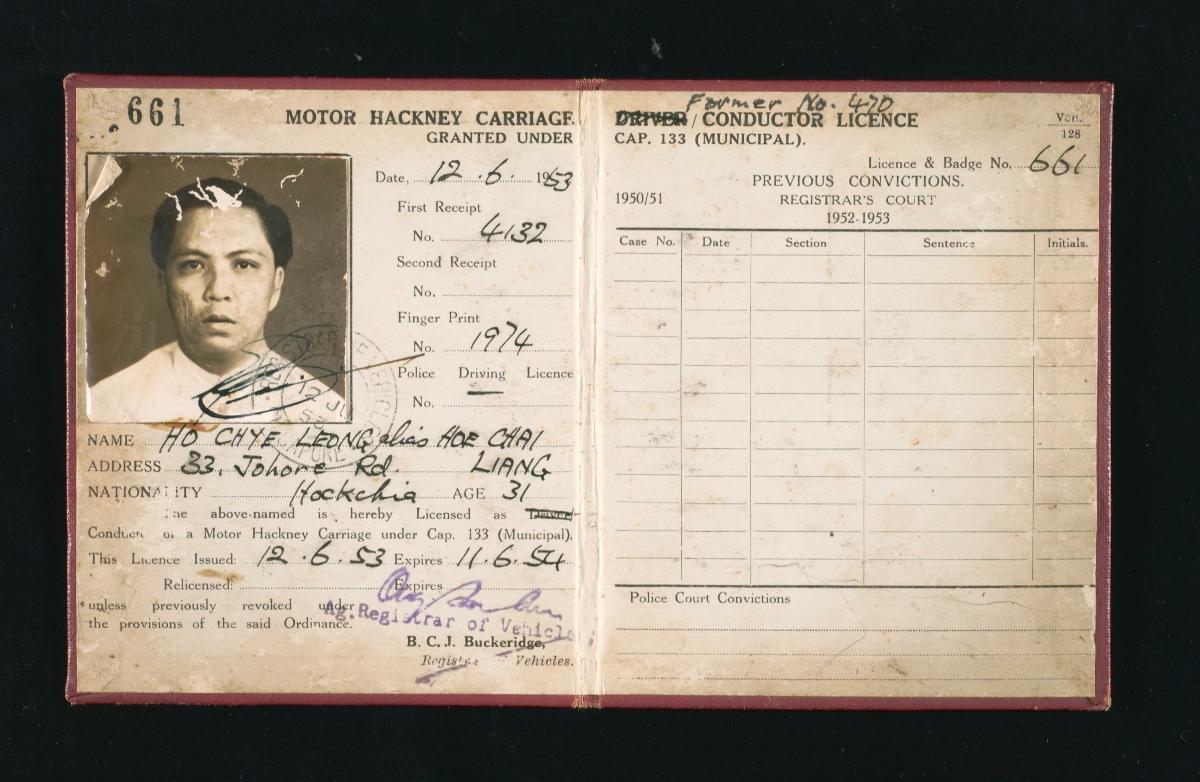 661
MOTOR HACKNEY CARRIAGE
GRANTED UNDER
Date, 12.6. 1953
First Receipt
No. 4132
Second Receipt
No.
Finger Print
No. 1974
Police Driving Licence
No. —
12 JU
53
NAME HO CHYE LEONG alias HOE CHAI
ADDRESS 33, Johore Rd. LIANG
NATIONALITY Hockchia AGE 31
The above-named is hereby Licensed as Driver
Conduct of a Motor Hackney Carriage under Cap. 133 (Municipal).
This Licence Issued: 12.6.53 Expires 11.6.54
Relicensed: Expires
unless previously revoked under
the provisions of the said Ordinance.
Ag. Registrar of Vehicle
B. C. J. Buckeridge,
Registrar Vehicles.
Former No. 470
DRIVER / CONDUCTOR LICENCE
CAP. 133 (MUNICIPAL).
Veh.
128
Licence & Badge No. 661
PREVIOUS CONVICTIONS.
1950/51 REGISTRAR'S COURT
1952-1953
Case No. Date Section Sentence Initials.
Police Court Convictions